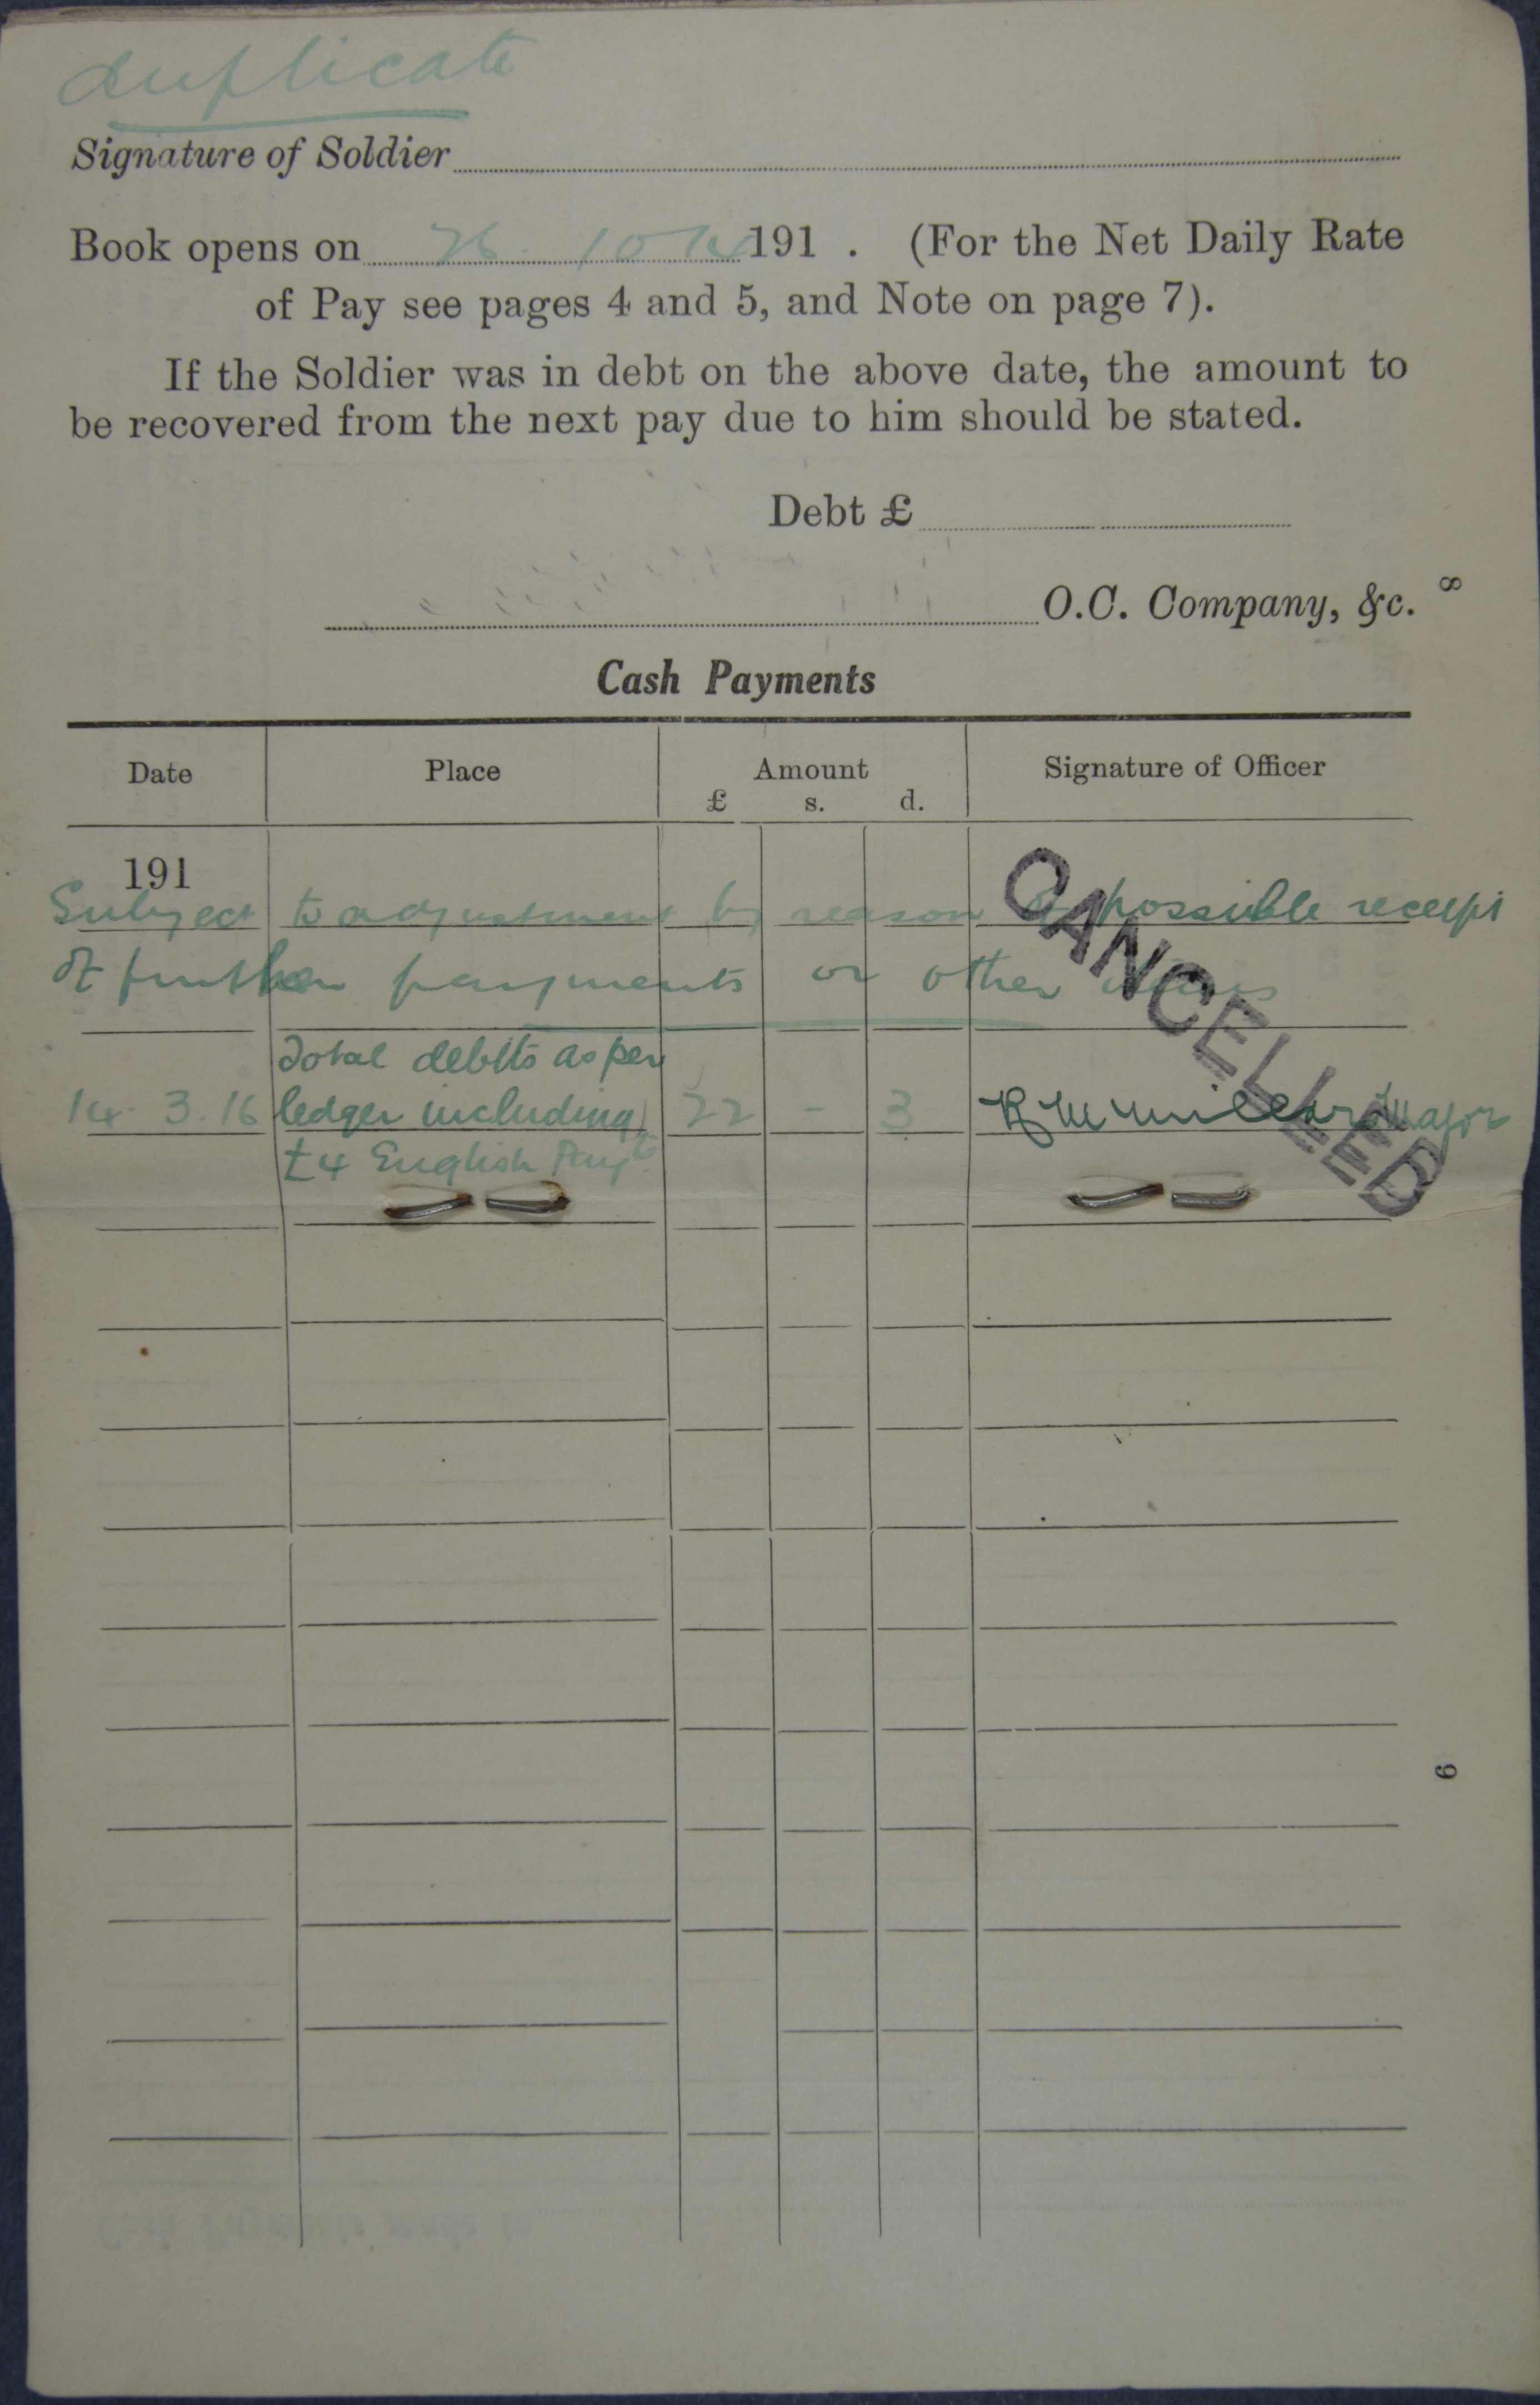 duplicate
Signature of Soldier
Book opens on 26. 10 14 191 . (For the Net Daily Rate
of Pay see pages 4 and 5, and Note on page 7).
If the Soldier was in debt on the above date, the amount to
be recovered from the next pay due to him should be stated.
Debt £
O.C. Company, &c.
8
Cash Payments
Date Place Amount Signature of Officer
£ s. d.
191
CANCELLED
Subject to adjustment by reason of possible receipt
of further payments or other
Total debits as per
14. 3. 16 ledger including 22 - 3 Major
£4 English Payts
9